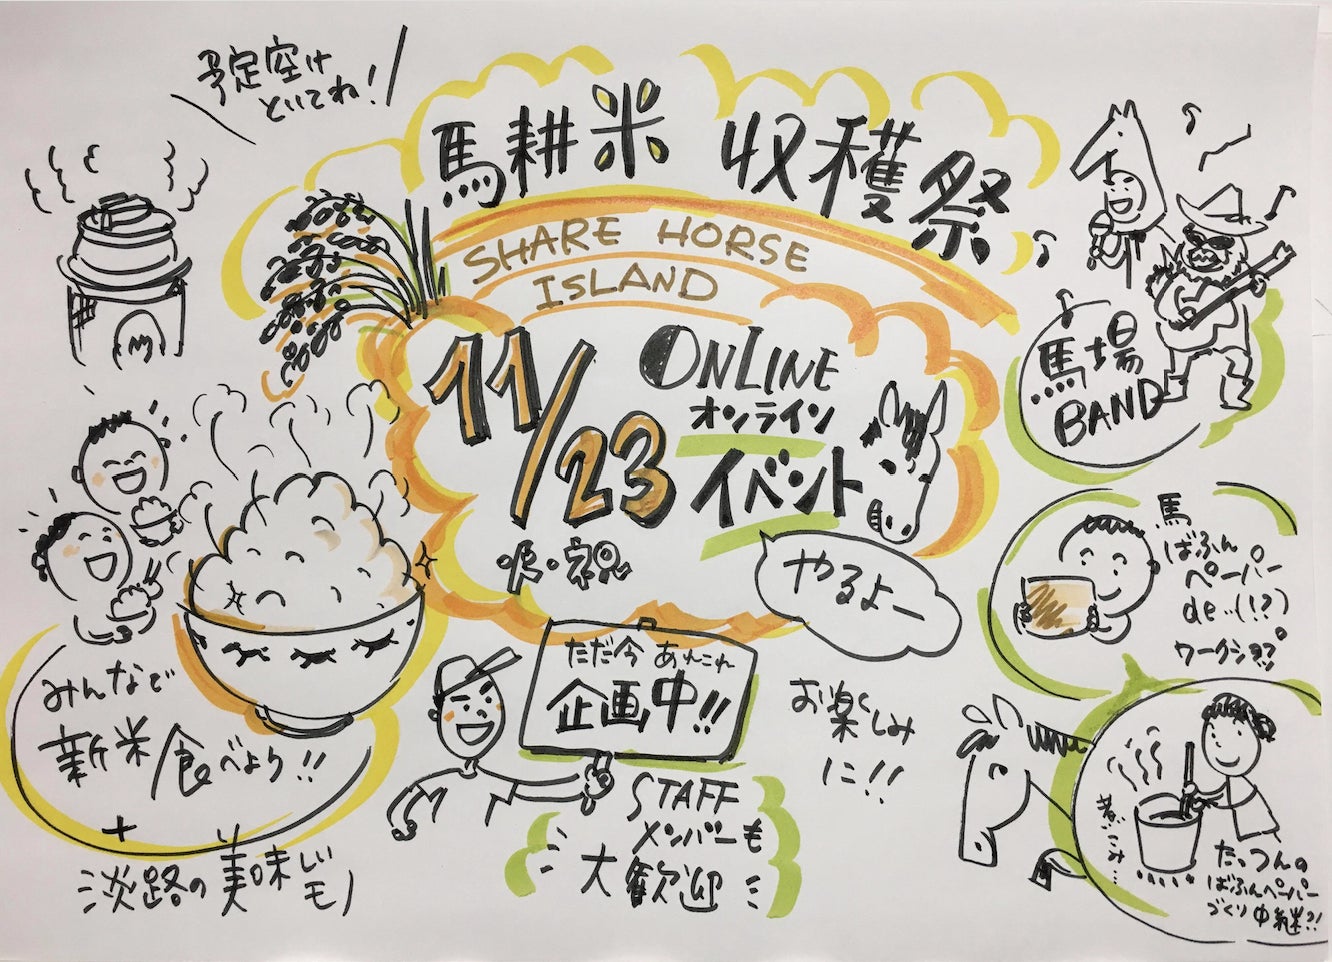 予定空け
といてね!
馬耕米 収穫祭
SHARE HORSE
ISLAND
11/23
祝・祝
ONLINE
オンライン
イベント
やるよー
馬場
BAND
馬
ばふん
ペーパー
de…(!?)
ワークショップ
みんなで
新米食べよう!!
+
淡路の美味しい
モノ
ただ今 あれこれ
企画中!!
STAFF
メンバーも
大歓迎
お楽しみ
に!!
煮こみ…
たっつんの
ばふんペーパー
づくり中継?!